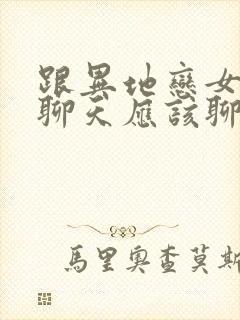 跟異地戀女
聊天應該聊
馬里奧查莫斯